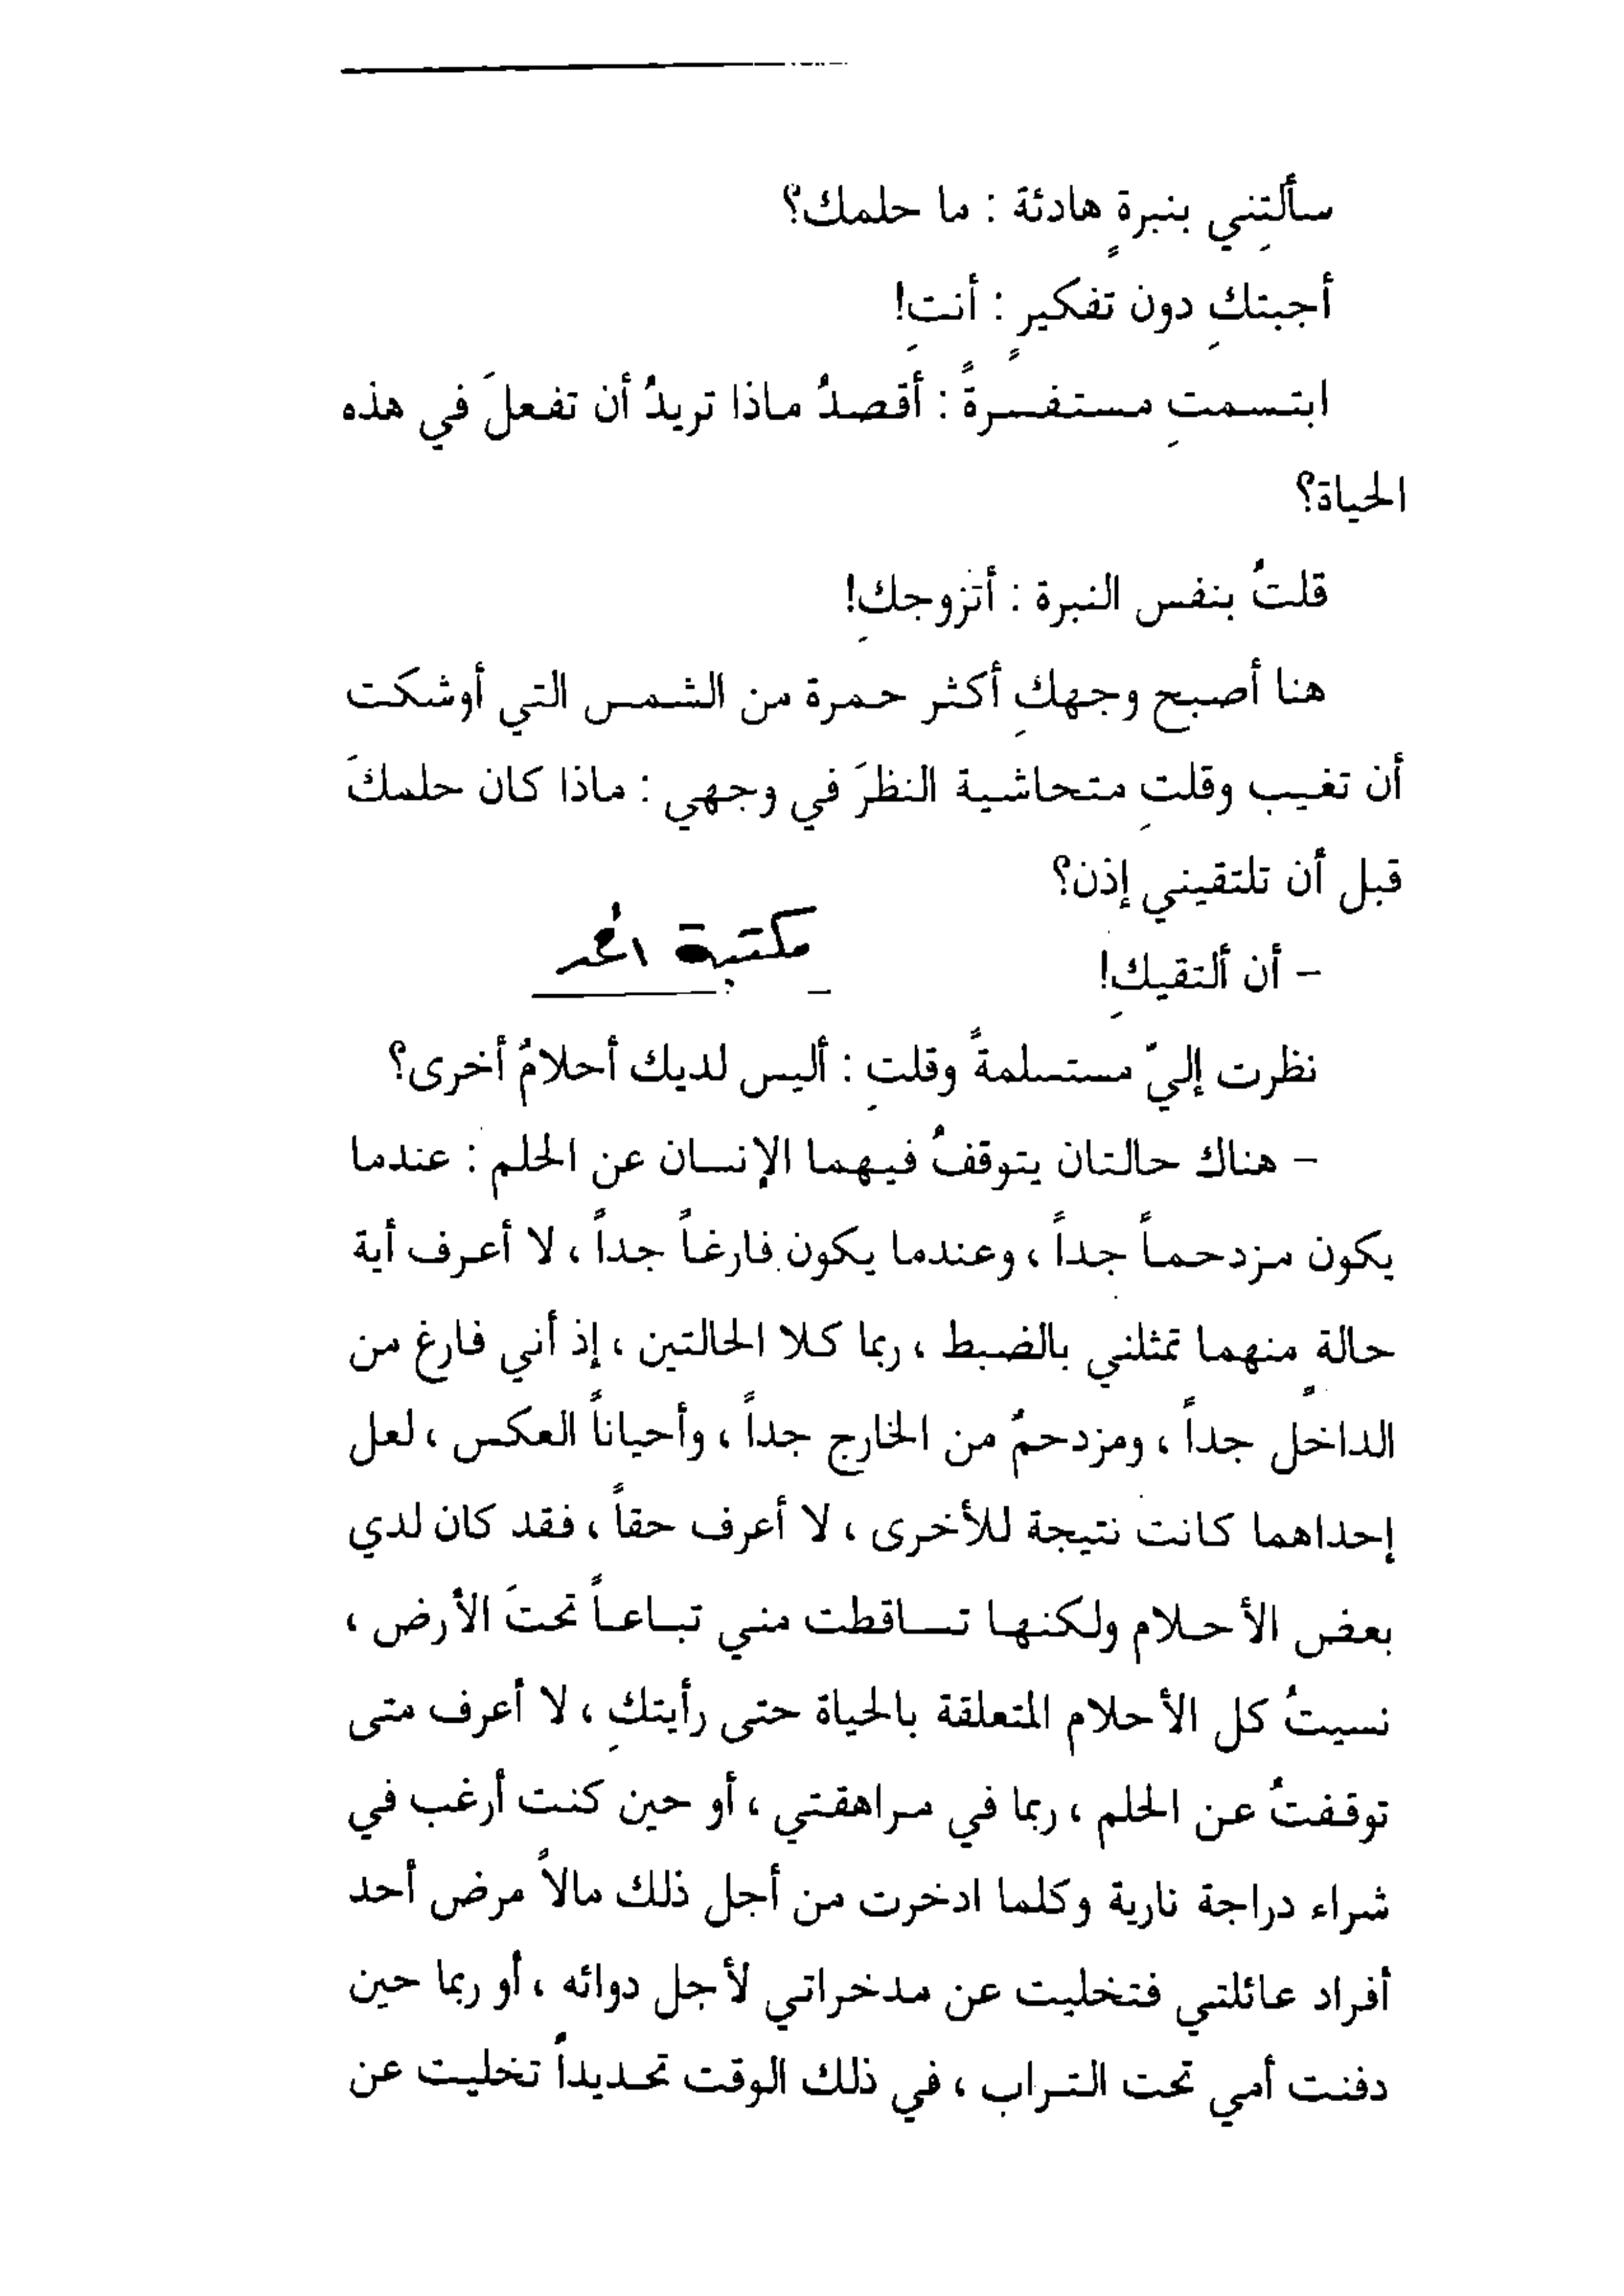 سألتِني بنبرةٍ هادئة : ما حلمك؟
أجبتكِ دون تفكيرٍ : أنتِ!
ابتسمتِ مستفسرةً : أقصدُ ماذا تريدُ أن تفعلَ في هذه
الحياة؟
قلتُ بنفس النبرة : أتزوجكِ!
هنا أصبح وجهكِ أكثر حمرة من الشمس التي أوشكت
أن تغيب وقلتِ متحاشية النظرَ في وجهي : ماذا كان حلمكَ
قبل أن تلتقيني إذن؟
– أن ألتقيكِ!
مكتبة
نظرت إليّ مستسلمةً وقلتِ : أليس لديك أحلامٌ أخرى؟
– هناك حالتان يتوقفُ فيهما الإنسان عن الحلم : عندما
يكون مزدحماً جداً ، وعندما يكون فارغاً جداً ، لا أعرف أية
حالة منهما تمثلني بالضبط ، ربما كلا الحالتين ، إذ أني فارغ من
الداخل جداً ، ومزدحمٌ من الخارج جداً ، وأحياناً العكس ، لعل
إحداهما كانت نتيجة للأخرى ، لا أعرف حقاً ، فقد كان لدي
بعض الأحلام ولكنها تساقطت مني تباعاً تحتَ الأرض ،
نسيتُ كل الأحلام المتعلقة بالحياة حتى رأيتكِ ، لا أعرف متى
توقفتُ عن الحلم ، ربما في مراهقتي ، أو حين كنت أرغب في
شراء دراجة نارية وكلما ادخرت من أجل ذلك مالاً مرض أحد
أفراد عائلتي فتخليت عن مدخراتي لأجل دوائه ، أو ربما حين
دفنت أمي تحت التراب ، في ذلك الوقت تحديداً تخليت عن